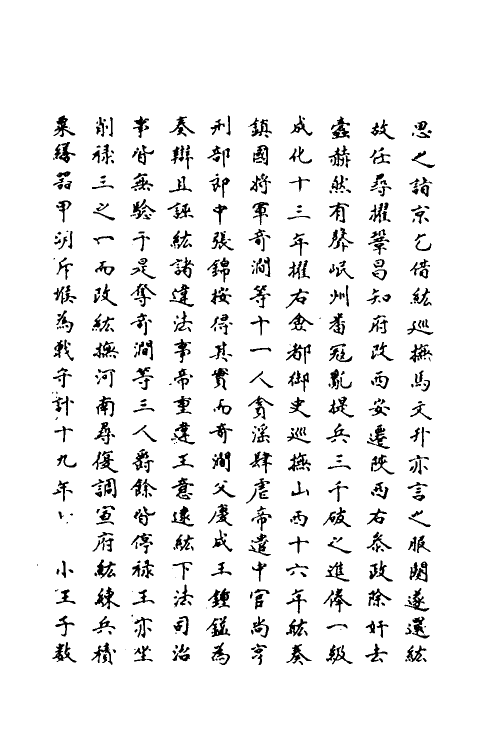 思之詣京乞借紘巡撫馬文升亦言之服闋遂還紘
故任尋擢鞏昌知府改西安遷陝西右叅政除奸去
蠹赫然有聲岷州番冦亂提兵三千破之進俸一級
成化十三年擢右僉都御史巡撫山西十六年紘奏
鎮國將軍奇澗等十一人貪淫肆虐帝遣中官尚亨
刑部郎中張錦按得其實而奇澗父慶成王鍾鎰為
奏辯且誣紘諸違法事帝重違王意逮紘下法司治
事皆無驗于是奪奇澗等三人爵餘皆停祿王亦坐
削祿三之一而改紘撫河南尋復調宣府紘練兵積
粟繕器甲浚斥堠為戰守計十九年小王子数